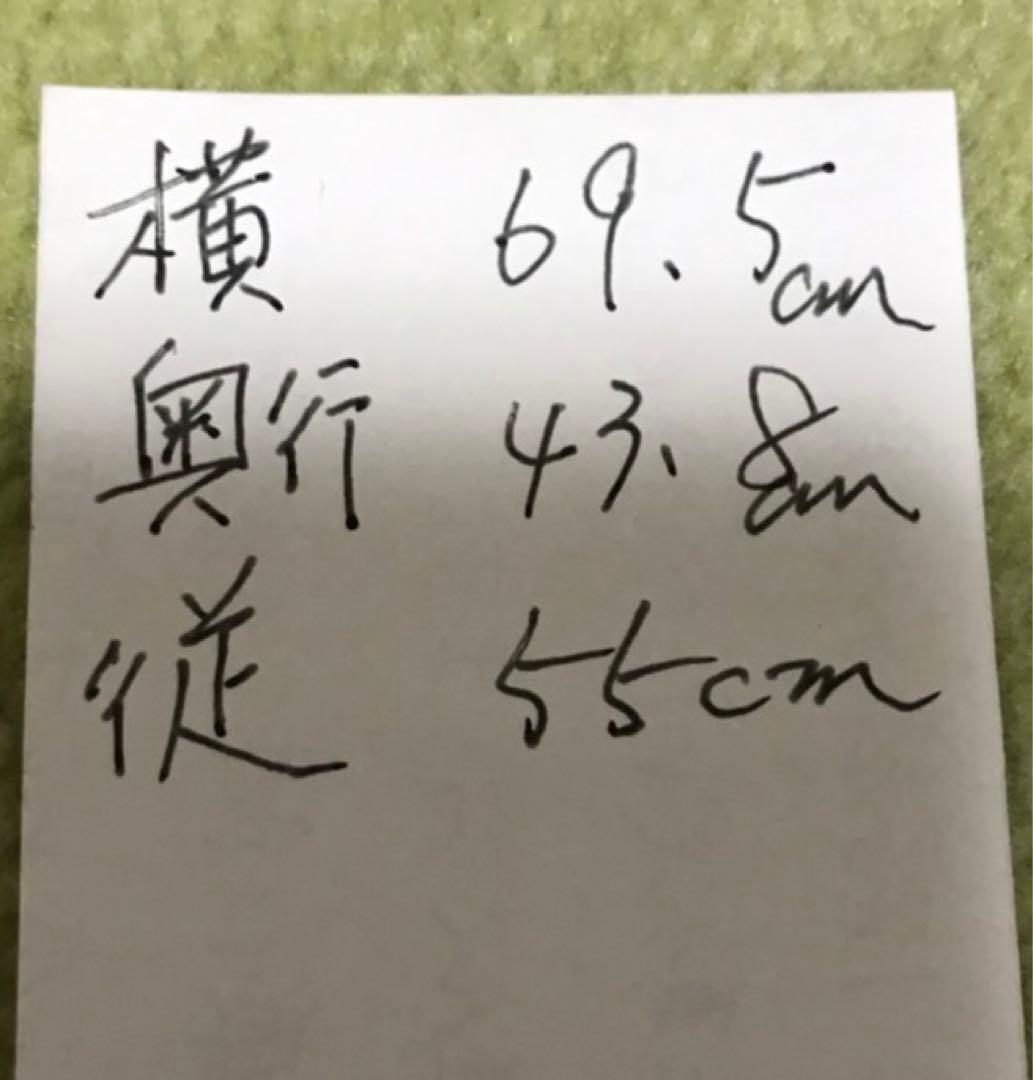 横 69.5cm
奥行 43.8cm
従 55cm